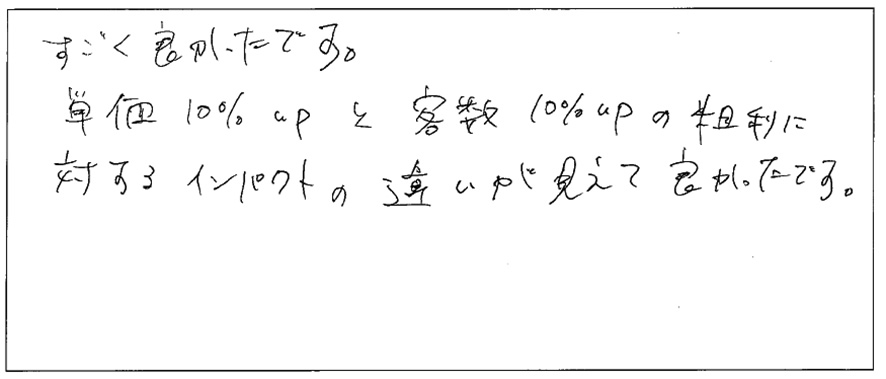 すごく良かったです。
単価 10% up と 客数 10% up の 粗利に
対する インパクトの 違いが 見えて 良かったです。